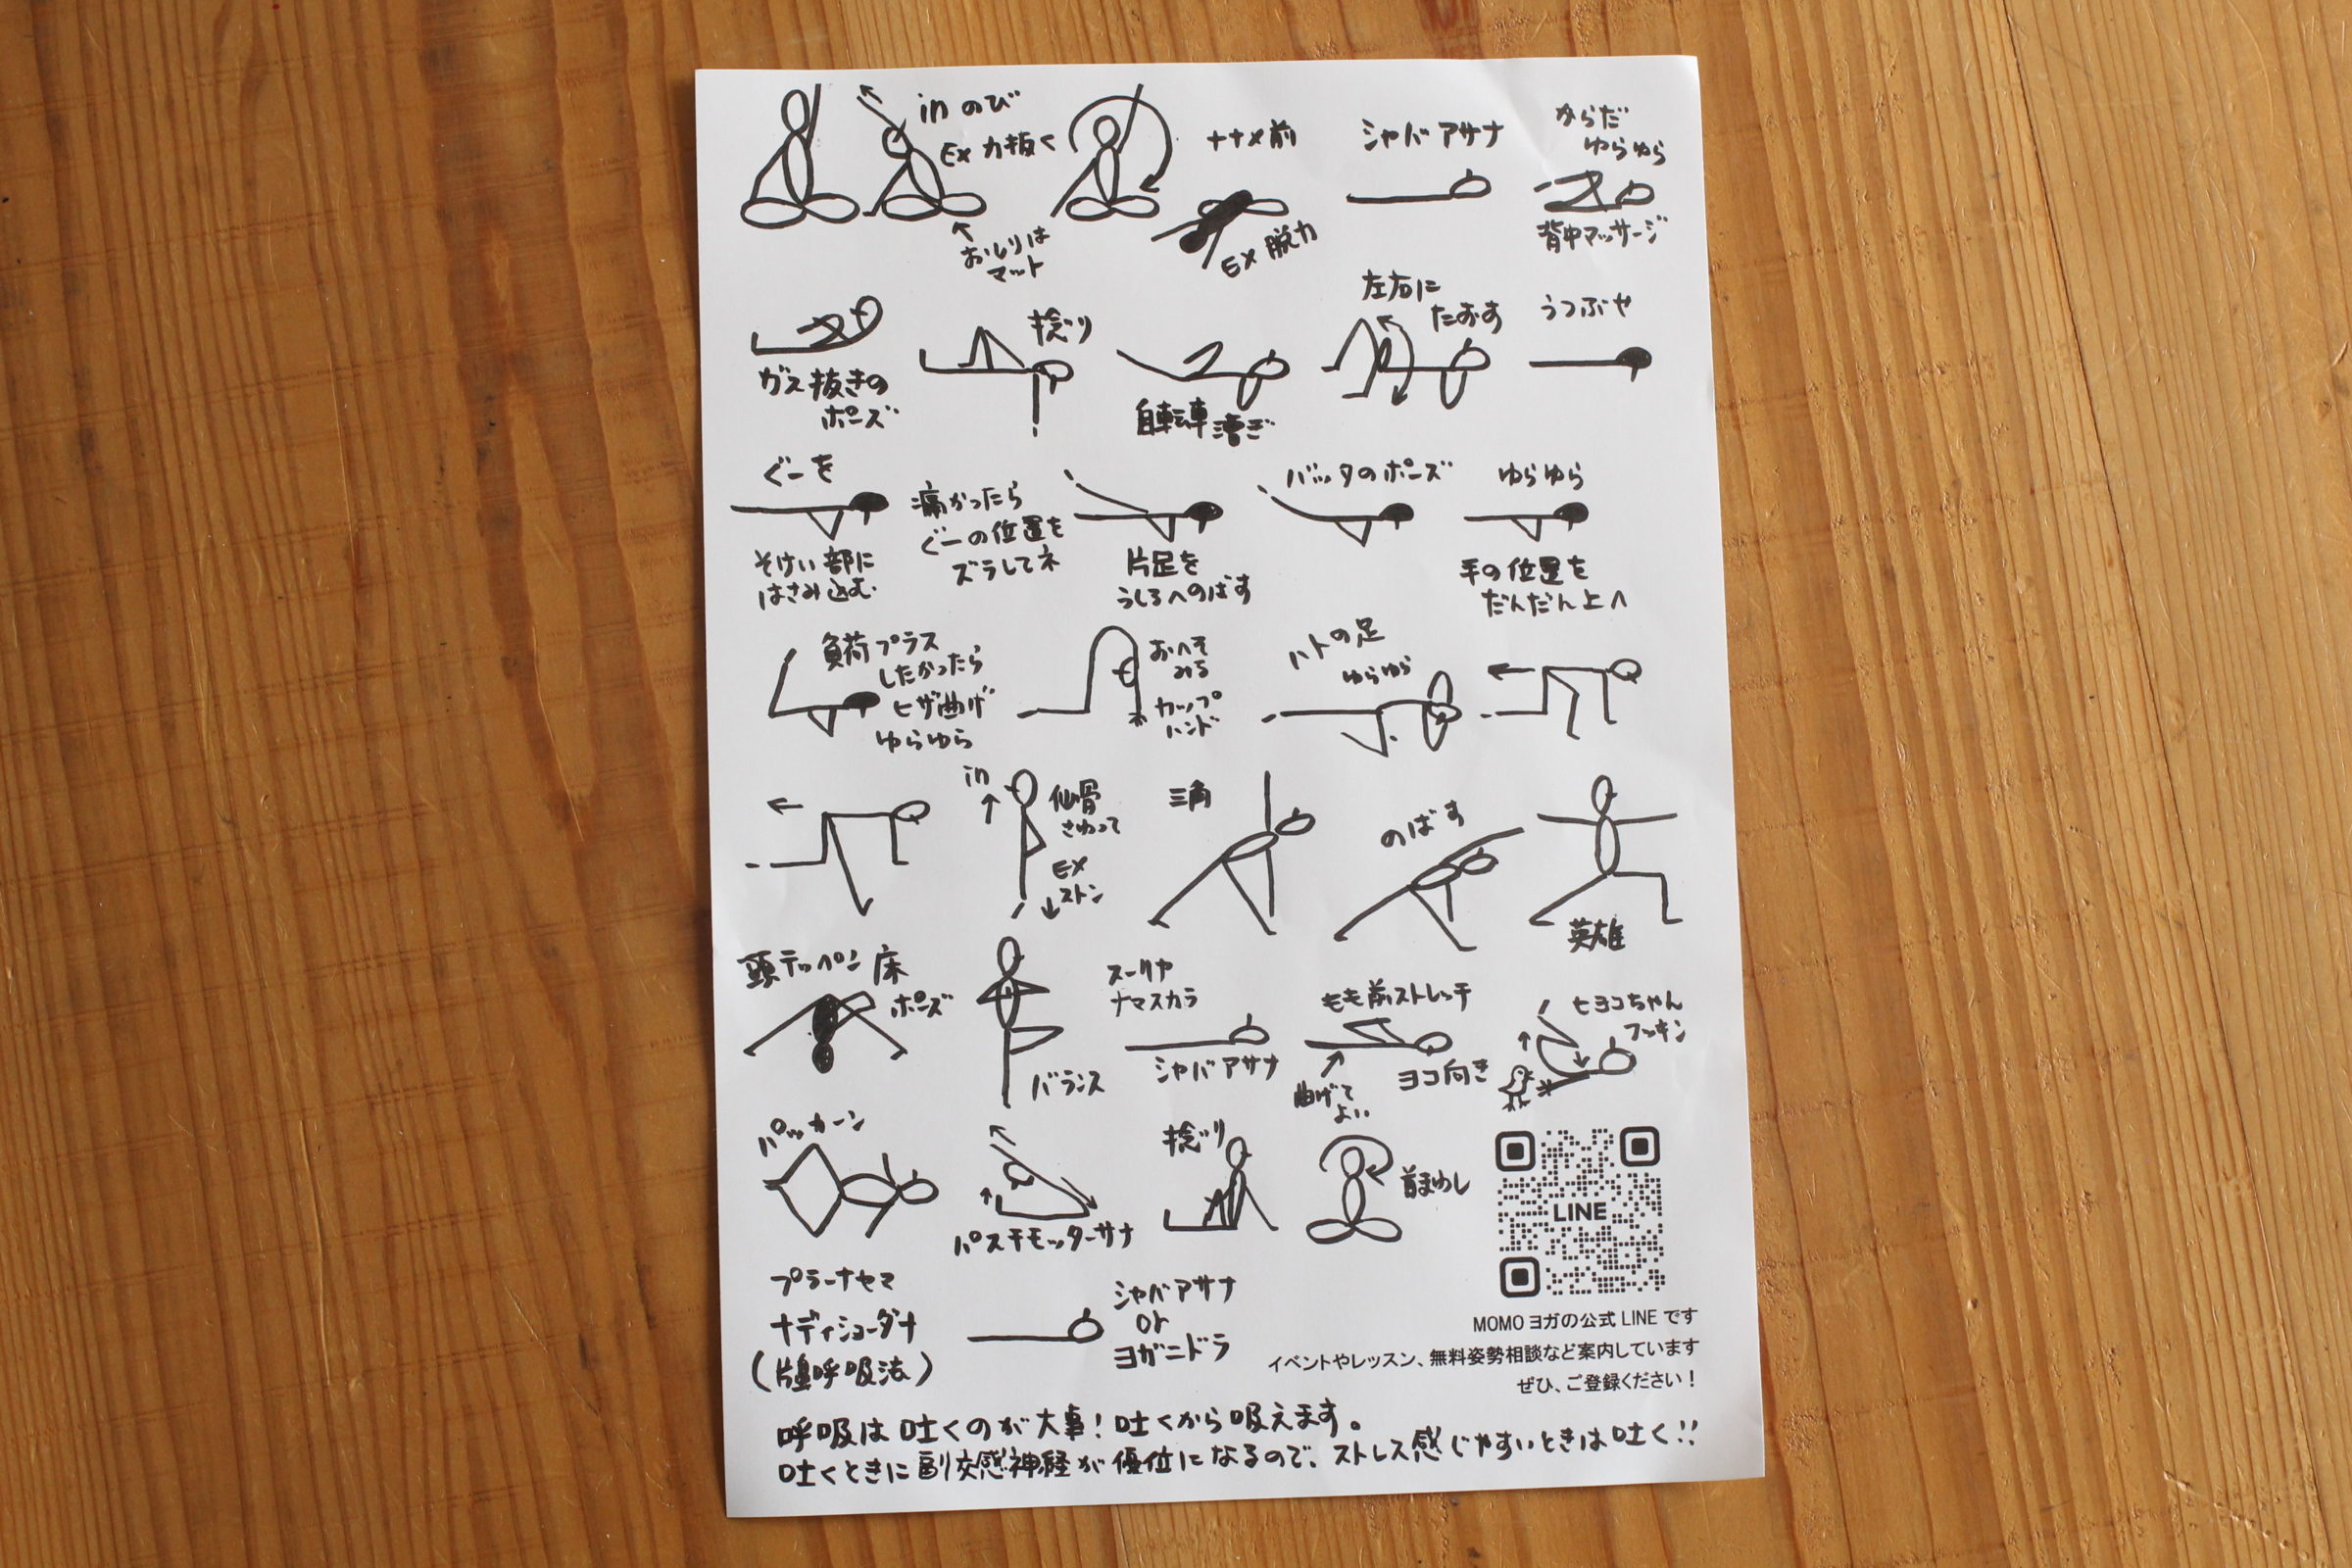 in のび
EX 力抜く
おしりは
マット
ナナメ前
EX 脱力
シャバアサナ
からだ
ゆらゆら
背中マッサージ
ガス抜きの
ポーズ
捻り
自転車漕ぎ
左右に
たおす
うつぶせ
ぐーを
そけい部に
はさみ込む
痛かったら
ぐーの位置を
ズラしてネ
片足を
うしろへのばす
バッタのポーズ
ゆらゆら
手の位置を
だんだん上へ
負荷プラス
したかったら
ヒザ曲げ
ゆらゆら
おへそ
みる
カップ
ハンド
ハトの足
ゆらゆら
in
仙骨
さわって
EX
ストン
三角
のばす
英雄
頭テッペン床
ポーズ
バランス
スーリヤ
ナマスカラ
シャバアサナ
もも前ストレッチ
ヨコ向き
曲げて
よい
ヒヨコちゃん
フッキン
パッカーン
パスチモッターサナ
捻り
首まわし
LINE
プラーナヤマ
ナディショーダナ
(片鼻呼吸法)
シャバアサナ
or
ヨガニドラ
MOMOヨガの公式LINEです
イベントやレッスン、無料姿勢相談など案内しています
ぜひ、ご登録ください！
呼吸は吐くのが大事!吐くから吸えます。
吐くときに副交感神経が優位になるので、ストレス感じやすいときは吐く!!